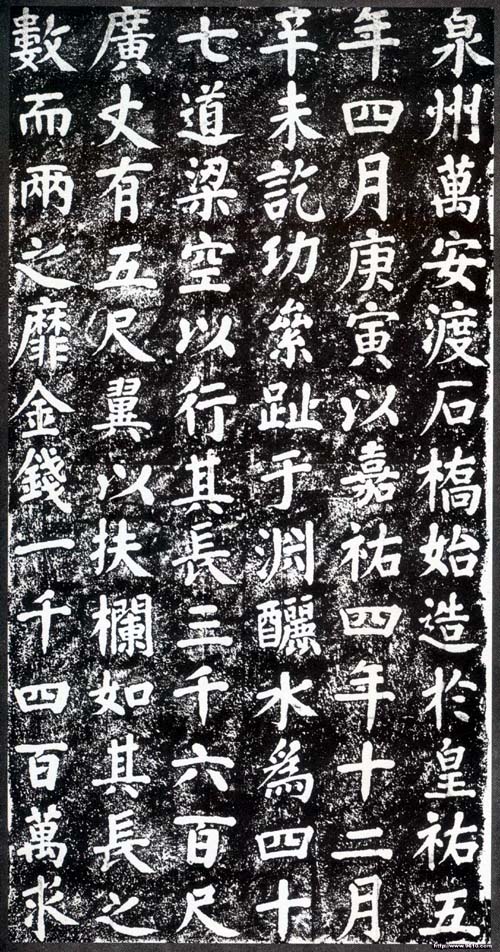 泉州萬安渡石橋始造於皇祐五
年四月庚寅以嘉祐四年十二月
辛未訖功絫趾于淵釃水爲四十
七道梁空以行其長三千六百尺
廣丈有五尺翼以扶欄如其長之
數而兩之靡金錢一千四百萬求
http://www.9610.com